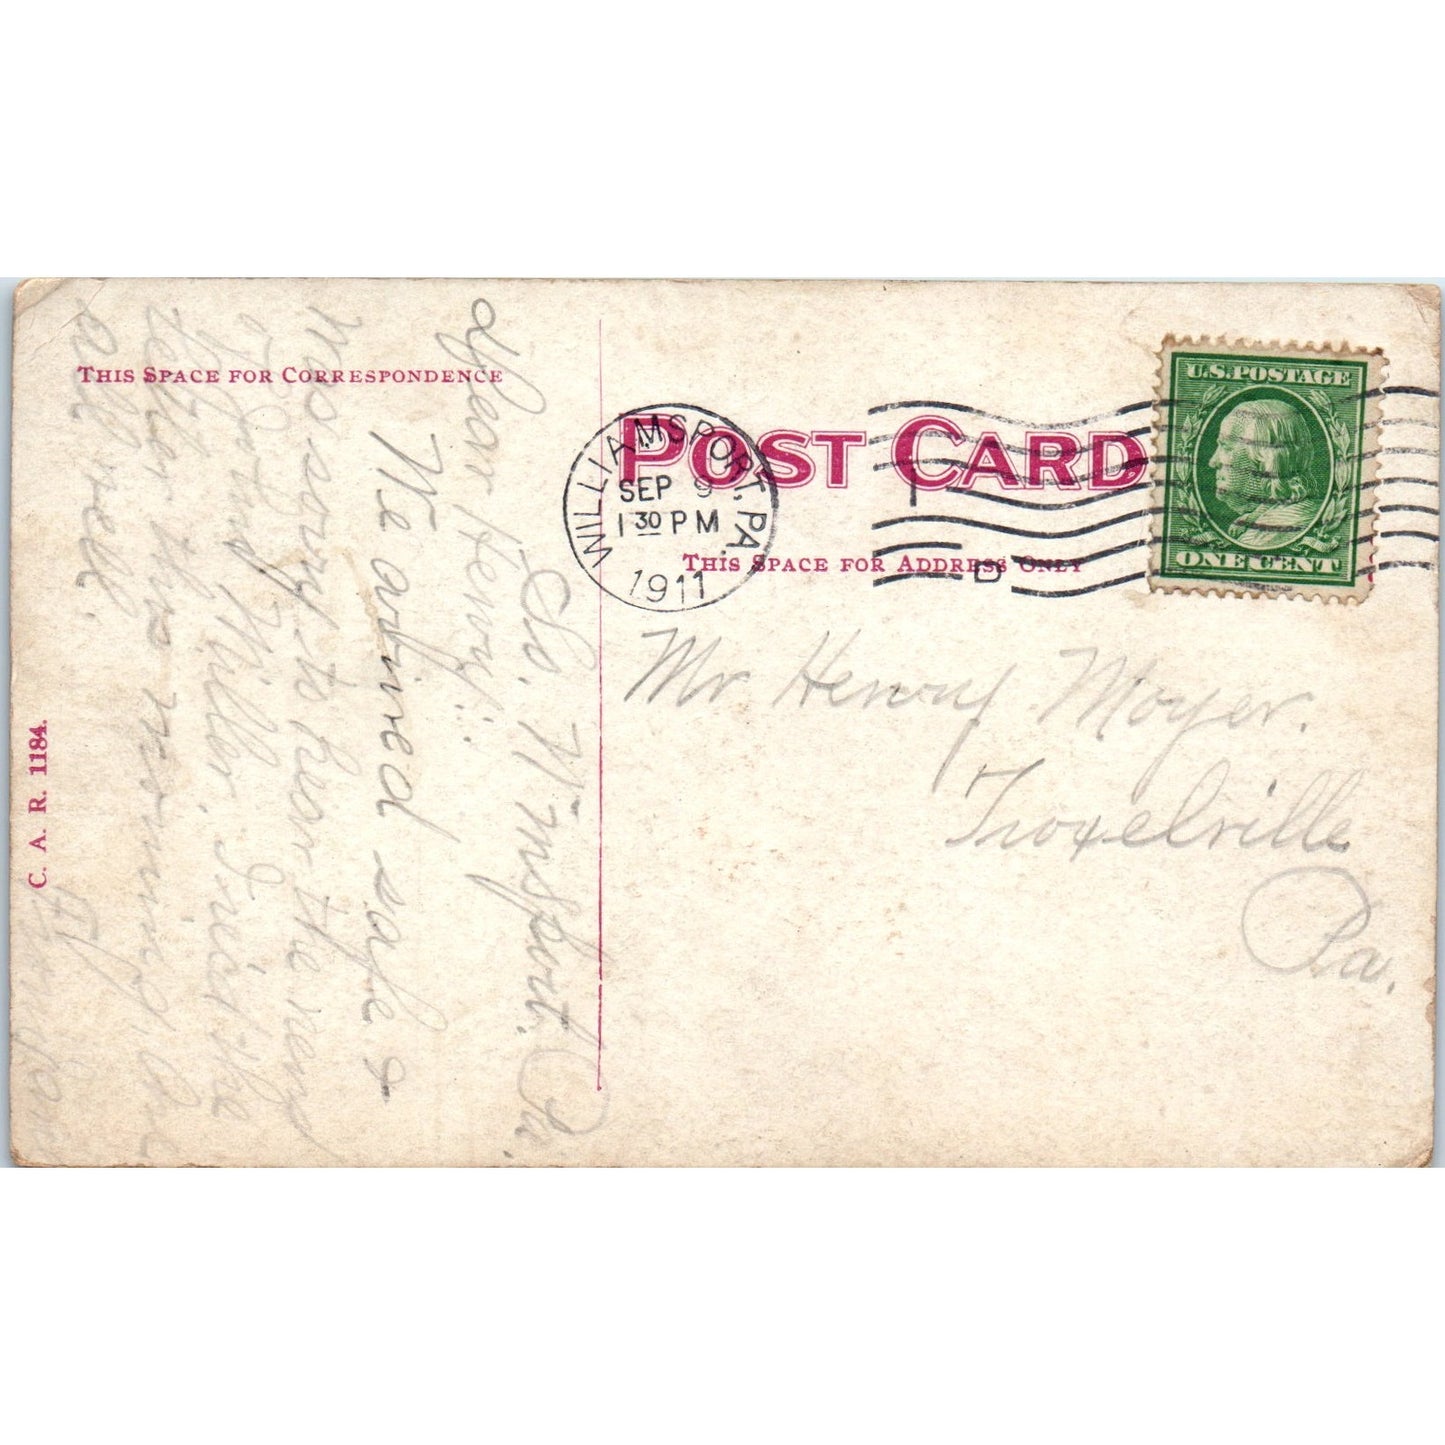 THIS SPACE FOR CORRESPONDENCE
So. W'msport. Pa.
Dear Henry:-
We arived safe &
was sorry to hear the news
of Jerns Miller. I ried the
letter this morning.
all well.
C. A. R. 1184.
POST CARD
THIS SPACE FOR ADDRESS ONLY
WILLIAMSPORT, PA.
SEP 9
1 30 PM
1911
U.S. POSTAGE
ONE CENT
Mr Henry Moyer.
Troxelville
Pa.